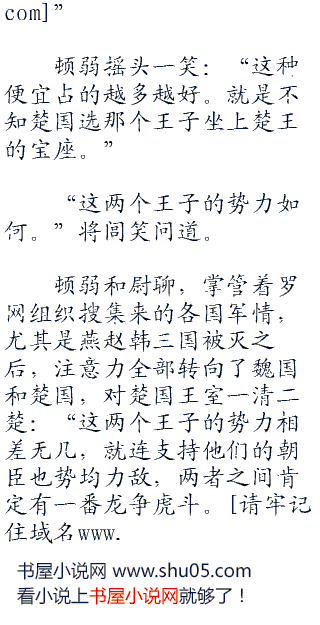 com]”
顿弱摇头一笑：“这种
便宜占的越多越好。就是不
知楚国选那个王子坐上楚王
的宝座。”
“这两个王子的势力如
何。”将闾笑问道。
顿弱和尉聊，掌管着罗
网组织搜集来的各国军情，
尤其是燕赵韩三国被灭之
后，注意力全部转向了魏国
和楚国，对楚国王室一清二
楚：“这两个王子的势力相
差无几，就连支持他们的朝
臣也势均力敌，两者之间肯
定有一番龙争虎斗。[请牢记
住域名www.
书屋小说网 www.shu05.com
看小说上书屋小说网就够了！